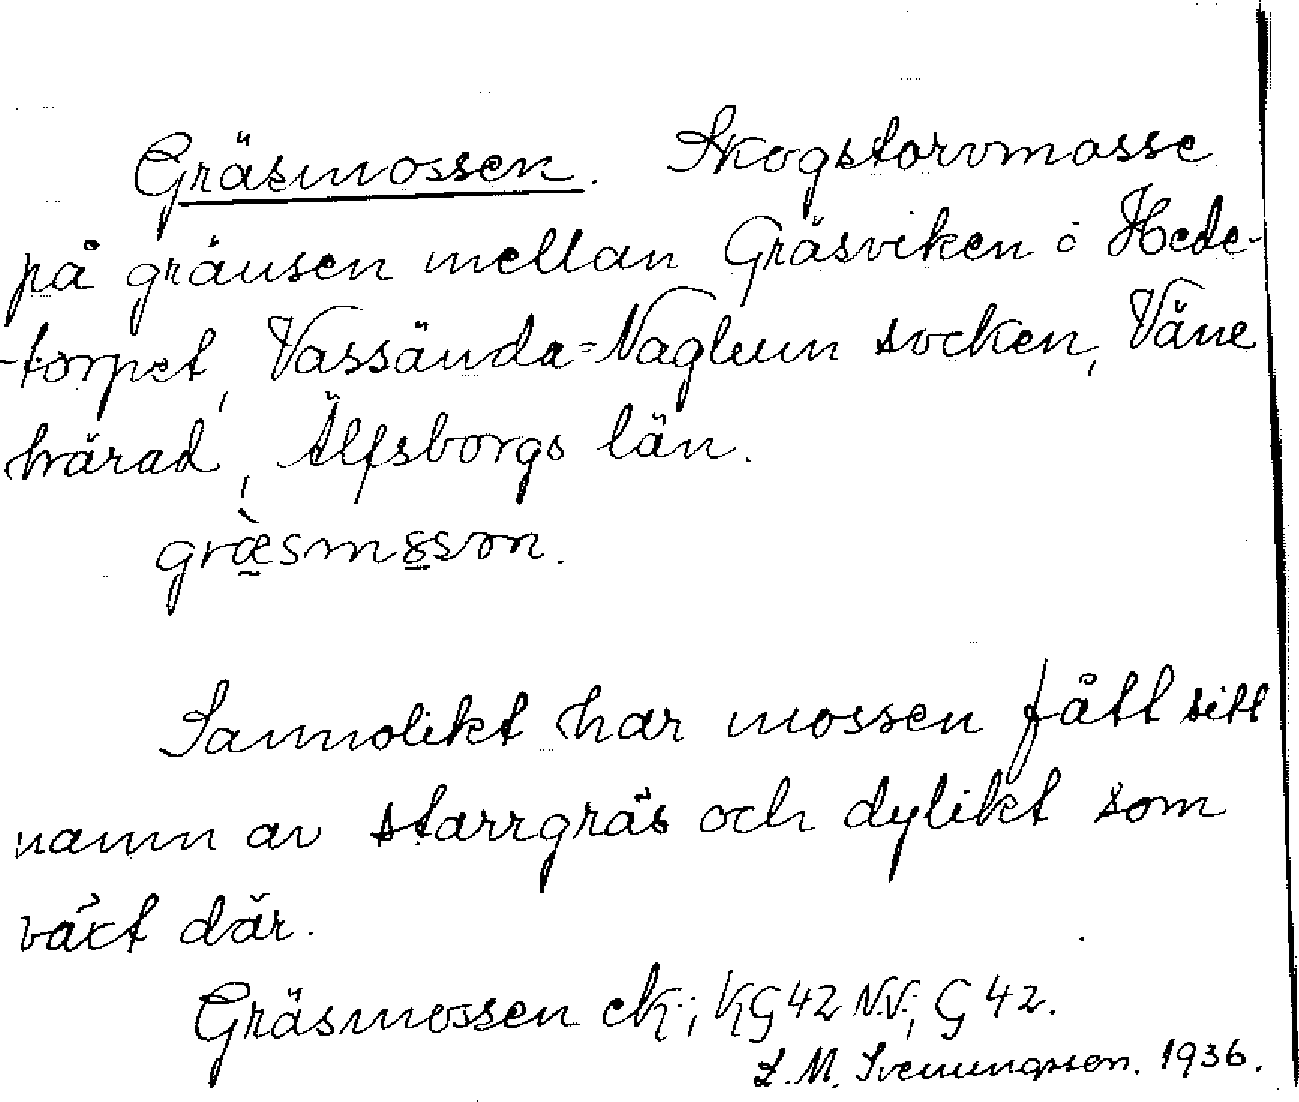 Gräsmossen. Skogstorvmosse
på gränsen mellan Gräsviken i Hede-
-torpet, Vassända=Naglum socken, Väne
härad, Älfsborgs län.
græ̀smɷsson.
Sannolikt har mossen fått sitt
namn av starrgräs och dylikt som
växt där.
Gräsmossen ek; KG 42 NV; G 42.
L. M. Svenungsson. 1936.